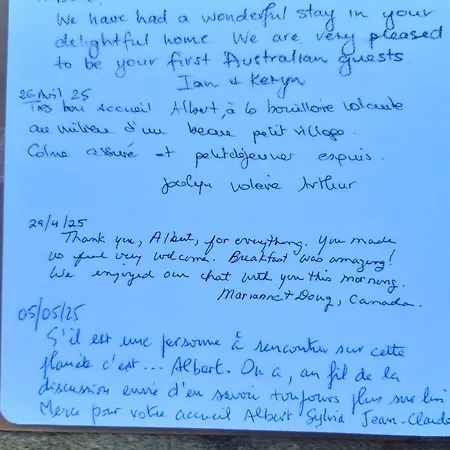 We have had a wonderful stay in your
delightful home. We are very pleased
to be your first Australian guests.
Ian & Keryn
26 Avril 25
Très bon accueil Albert, à la bouilloire volante
au milieu d'un beau petit village.
Calme assuré et petit déjeuner exquis.
Jocelyn Valérie Arthur
29/4/25
Thank you, Albert, for everything. You made
us feel very welcome. Breakfast was amazing!
We enjoyed our chat with you this morning.
Marianne + Doug, Canada.
05/05/25
S'il est une personne à rencontrer sur cette
planète c'est... Albert. On a, au fil de la
discussion envie d'en savoir toujours plus sur lui
Merci pour votre accueil Albert Sylvia Jean-Claude